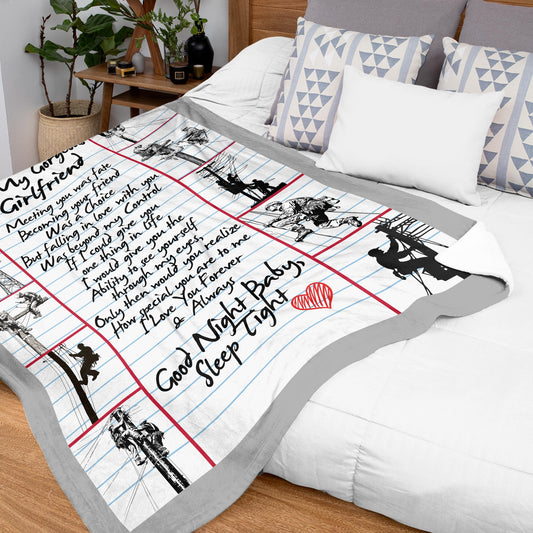 My Gorgeous
Girlfriend
Meeting you was fate
Becoming your friend
Was a Choice
But falling in love with you
Was beyond my Control
If I could give you
one thing in life
I would give you the
Ability to see yourself
through my eyes,
Only then would you realize
How special you are to me
I Love You Forever
& Always
Good Night Baby,
Sleep Tight